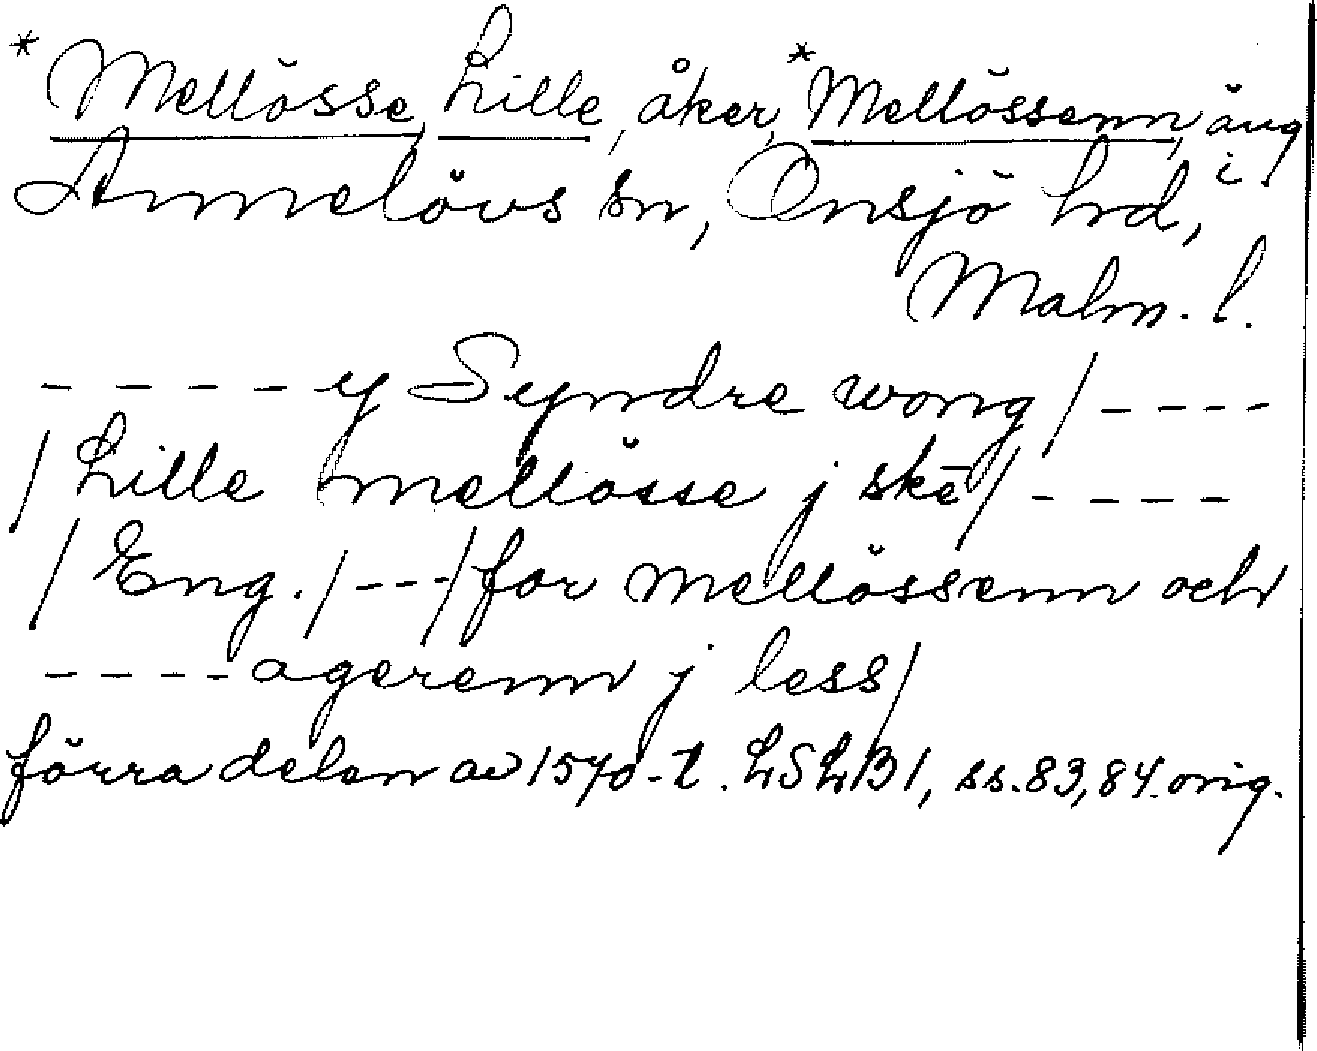 * Mellösse, Lille, åker, * Mellössenn, äng i
Annelövs sn, Onsjö hrd,
Malm. l.
- - - - - y Syndre wong / - - - -
/ Lille mellösse j skē / - - - -
/ Eng. / - - - / for mellössenn och
- - - - agerenn j less /
förra delen av 1570-t. LSLB1, ss. 83, 84. orig.